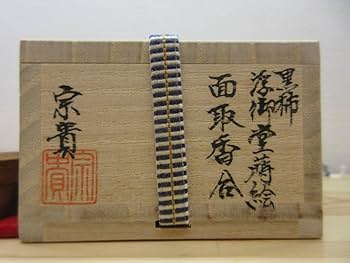 黒柿
浮御堂蒔絵
面取香合
宗